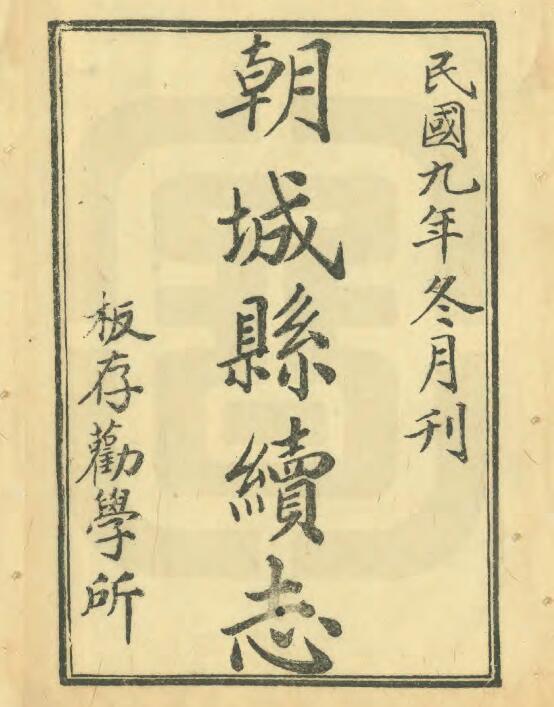 民國九年冬月刊
朝城縣續志
板存勸學所